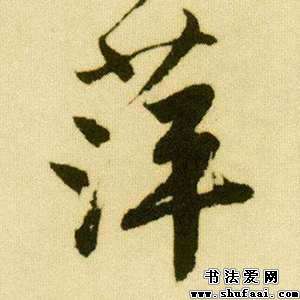 萍
书法爱网
www.shufaai.com